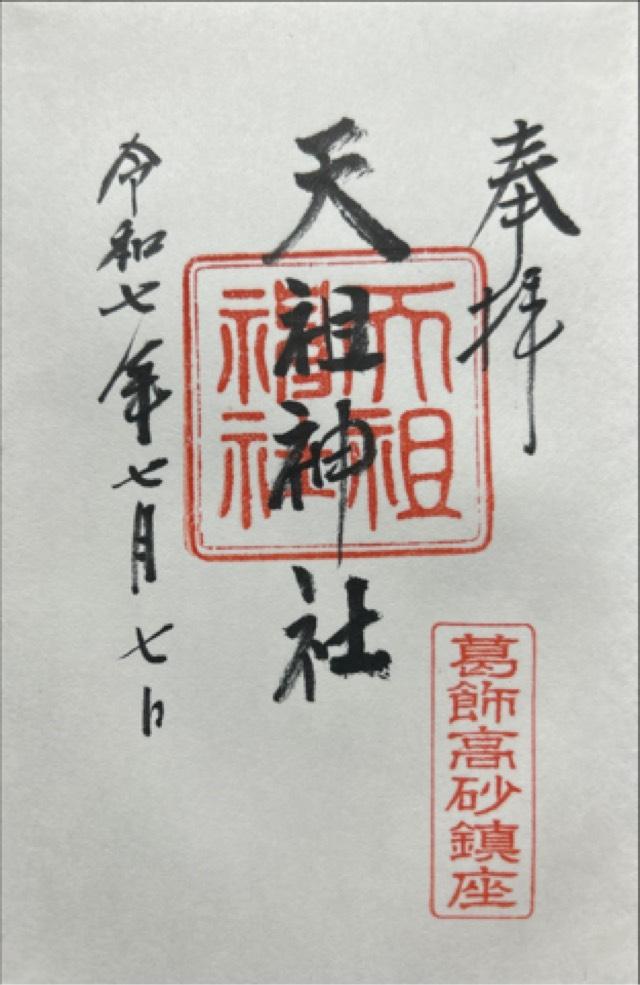 奉拝
天祖神社
天祖
神社
令和七年七月七日
葛飾高砂鎮座